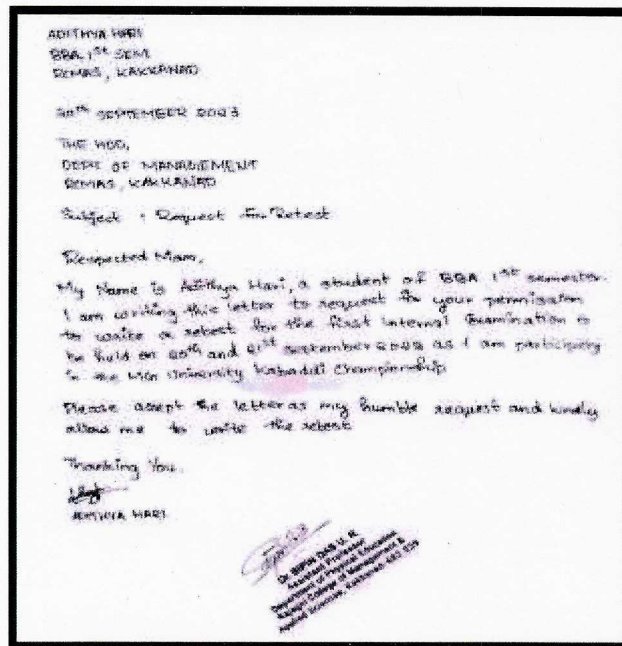 ADITHYA HARI
BBA 1st SEM
RCMAS, KAKKANAD
20th SEPTEMBER 2023
THE HOD,
DEPT OF MANAGEMENT
RCMAS, KAKKANAD
Subject : Request For Retest
Respected Mam,
My Name is Adithya Hari, a student of BBA 1st semester.
I am writing this letter to request for your permission
to write a retest for the first Internal Examination to
be held on 20th and 21st September 2023 as I am participating
in the University Kabaddi Championship
Please accept the letter as my humble request and kindly
allow me to write the retest
Thanking You.
ADITHYA HARI
Dr. BIPIN DAS U. R.
Assistant Professor
Department of Physical Education
Rajagiri College of Management &
Applied Sciences, Kakkanad, 682 039